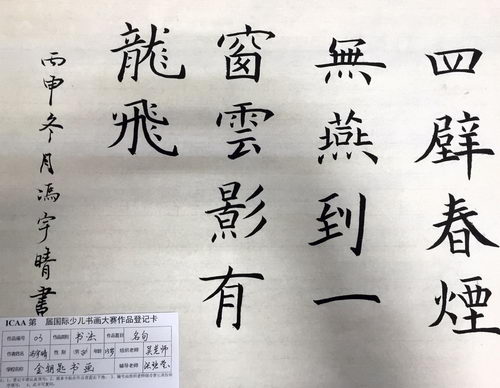 四壁春煙
無燕到一
窗雲影有
龍飛
丙申冬月馮宇晴書
ICAA 第 届国际少儿书画大赛作品登记卡
作品编号 03 作品类别 书法 作品题目 名句
作者姓名 冯宇晴 性别 年龄 组织老师 吴老师
学校名称 金钥匙书画 辅导老师